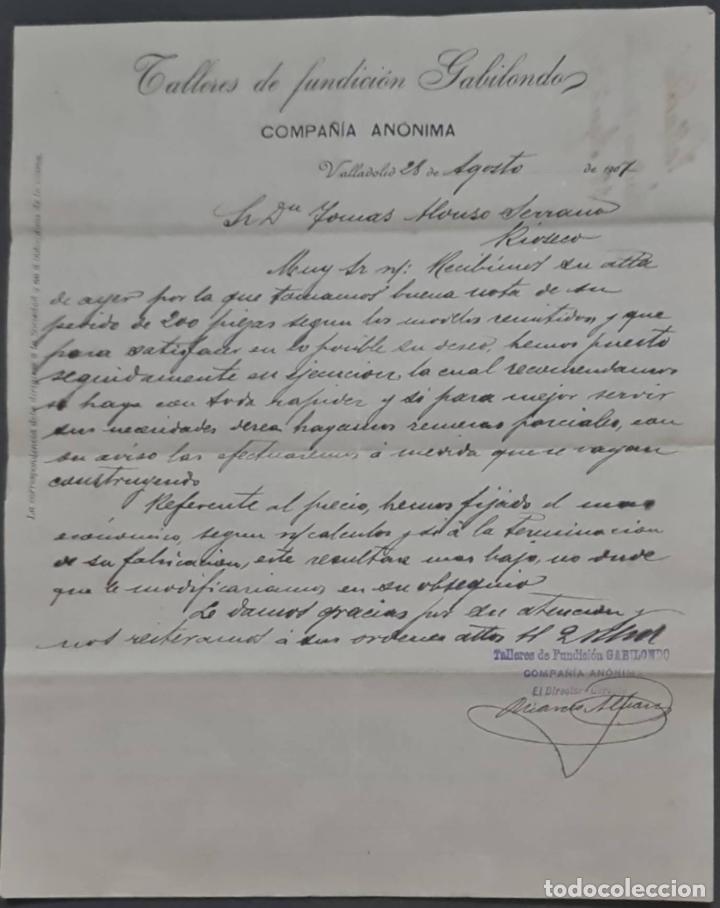 Talleres de fundición Gabilondo
COMPAÑÍA ANÓNIMA
Valladolid 28 de Agosto de 1907
Sr Dn Tomas Alonso Serrano
Rioseco
Muy Sr n/: Recibimos su atta
de ayer por la que tomamos buena nota de su
pedido de 200 piezas segun los modelos remitidos, y que
para satisfacer en lo posible su deseo, hemos puesto
seguidamente en ejecucion, la cual recomendamos
se haga con toda rapidez y si para mejor servir
sus necesidades desea hagamos remesas parciales, con
su aviso las efectuaremos á medida que se vayan
construyendo
Referente al precio, hemos fijado el mas
económico, segun n/calculos y si á la terminacion
de su fabricacion, este resultara mas bajo, no dude
que le modificariamos en su obsequio
Le damos gracias por su atencion y
nos reiteramos á sus ordenes attos
Talleres de Fundición GABILONDO
COMPAÑÍA ANÓNIMA
El Director Gerente
La correspondencia debe dirigirse á la Sociedad y no á
todocoleccion